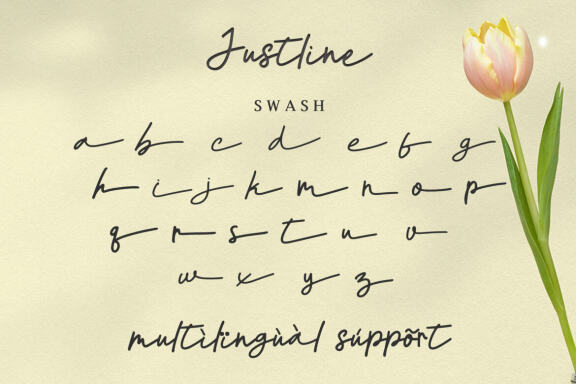 Justline
SWASH
a b c d e f g
h i j k m n o p
q r s t u v
w x y z
multìlïngùàl súppõrt